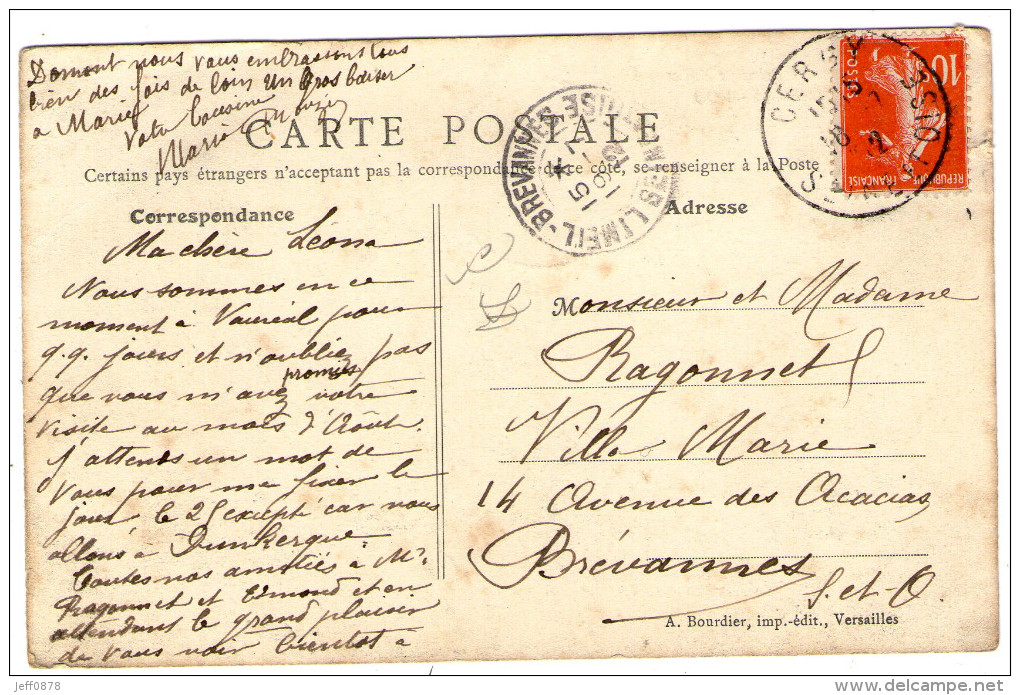 Domont nous vous embrassons tous
bien des fois de loin Un Gros baiser
a Marie
Votre Cousine
Maria
CARTE POSTALE
Certains pays étrangers n'acceptant pas la correspondance de ce côté, se renseigner à la Poste
Correspondance
Adresse
Ma chère Léona
Nous sommes en ce
moment à Vauréal pour
q.q. jours et n'oubliez pas
que vous m'avez promis votre
visite au mois d'Août.
J'attends un mot de
Vous pour me fixer le
jour le 25 excepté car nous
allons à Dunkerque.
Toutes nos amitiés à Mr
Ragonnet et Edmond et en
attendant le grand plaisir
de vous voir bientot à
Monsieur et Madame
Ragonnet
Villa Marie
14 Avenue des Acacias
Brévannes
S.et.O.
A. Bourdier, imp.-édit., Versailles
CERGY
SEINE-ET-OISE
LIMEIL-BREVANNES
10
POSTES
REPUBLIQUE
FRANÇAISE
jeff0878